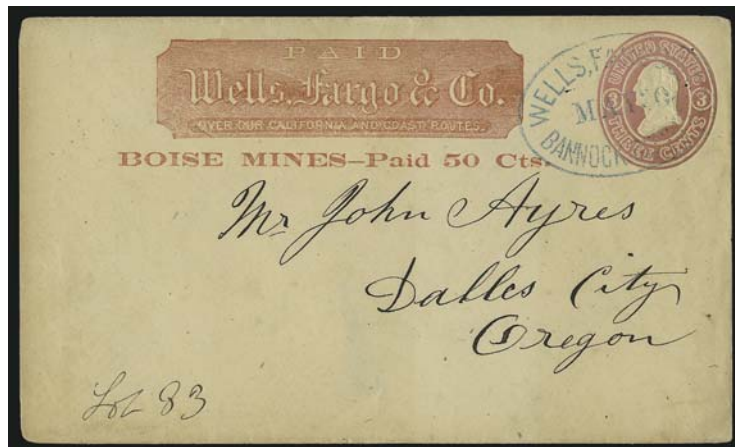 PAID
Wells, Fargo & Co.
OVER OUR CALIFORNIA AND COAST ROUTES.
BOISE MINES–Paid 50 Cts.
WELLS, FA
BANNOCK
UNITED STATES
3 3
THREE CENTS
Mr John Ayres
Dalles City
Oregon
Lot 83